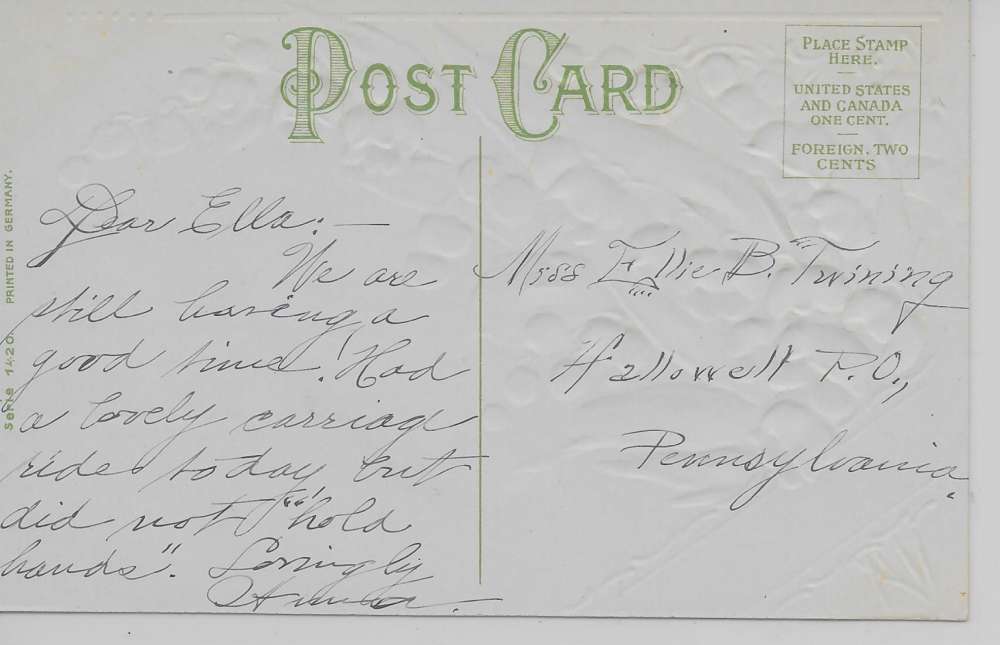 POST CARD
PLACE STAMP
HERE.
UNITED STATES
AND CANADA
ONE CENT.
FOREIGN, TWO
CENTS
Serie 1420. PRINTED IN GERMANY.
Dear Ella:—
We are
still having a
good time! Had
a lovely carriag
ride today but
did not "hold
hands". Lovingly
Miss Ellie B. Twining
Hallowell P.O.,
Pennsylvania.